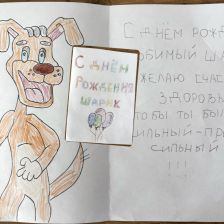 С ДНЁМ
РОЖДЕНИЯ
ШАРИК
С ДНЁМ РОЖД
ЮБИМЫЙ ША
ЖЕЛАЮ СЧАС
ЗДОРОВЬ
ТОБЫ ТЫ БЫЛ
ИЛЬНЫЙ-ПР
СИЛЬНЫЙ
!!!